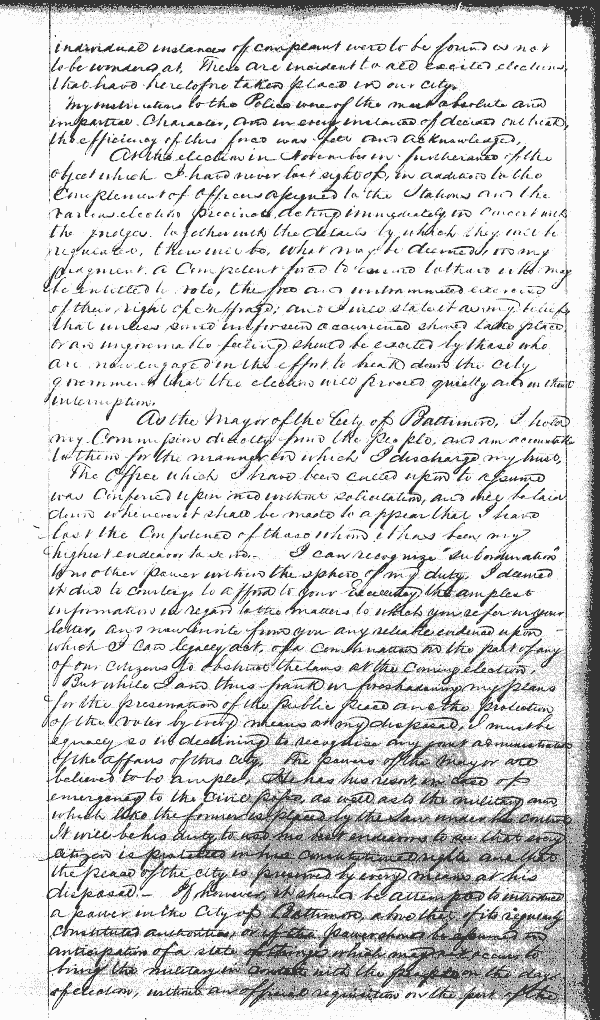 individual instances of complaint were to be found is not
to be wondered at. These are incident to all excited elections,
that have heretofore taken place in our city.
My instructions to the Police were of the most absolute and
impartial Character, and in every instance of decided outbreak,
the efficiency of this force was felt and acknowledged.
At the election in November in furtherance of the
object which I have never lost sight of, in addition to the
Complement of Officers assigned to the Stations and the
various election precincts, acting immediately in concert with
the judges together with the details by which they will be
regulated, there will be, what may be deemed, in my
judgment a Competent force to ensure to those who may
be entitled to vote, the free and untrammeled exercise
of their right of suffrage; and I will state it as my belief
that unless some unforseen occurrence should take place
or an ungovernable feeling should be excited by those who
are now engaged in the effort to break down the city
government that the election will proceed quietly and without
interruption.
As the Mayor of the City of Baltimore, I hold
my Commission directly from the people, and am accountable
to them for the manner in which I discharge my trust.
The Office which I have been called upon to assume
was conferred upon me without solicitation, and will be laid
down whenever it shall be made to appear that I have
lost the Confidence of those whom it has been my
highest endeavor to serve. I can recognize "subordination"
to no other power within the sphere of my duty. I deemed
it due to courtesy to afford to your Excellency the amplest
information in regard to the matters to which you refer in your
letter, and now invite from you any reliable evidence upon
which I can legally act, of a Combination on the part of any
of our citizens to obstruct the laws at the coming election.
But while I am thus frank in foreshadowing my plans
for the preservation of the Public Peace and the protection
of the voter by every means at my disposal, I must be
equally so in declining to recognise any joint administration
of the affairs of this city. The powers of the Mayor are
believed to be ample. He has his resort, in case of
emergency to the civil posse, as well as to the military arm
which like the former is placed by the law under his control
It will be his duty to use his best endeavors to see that every
citizen is protected in his constitutional rights and that
the peace of the city is preserved by every means at his
disposal. If however, it should be attempted to introduce
a power in the City of Baltimore, above that of its regularly
constituted authorities, or if this power should be assumed in
anticipation of a state of things which may not occur to
bring the military in contact with the people on the day
of election, without an official requisition on the part of the